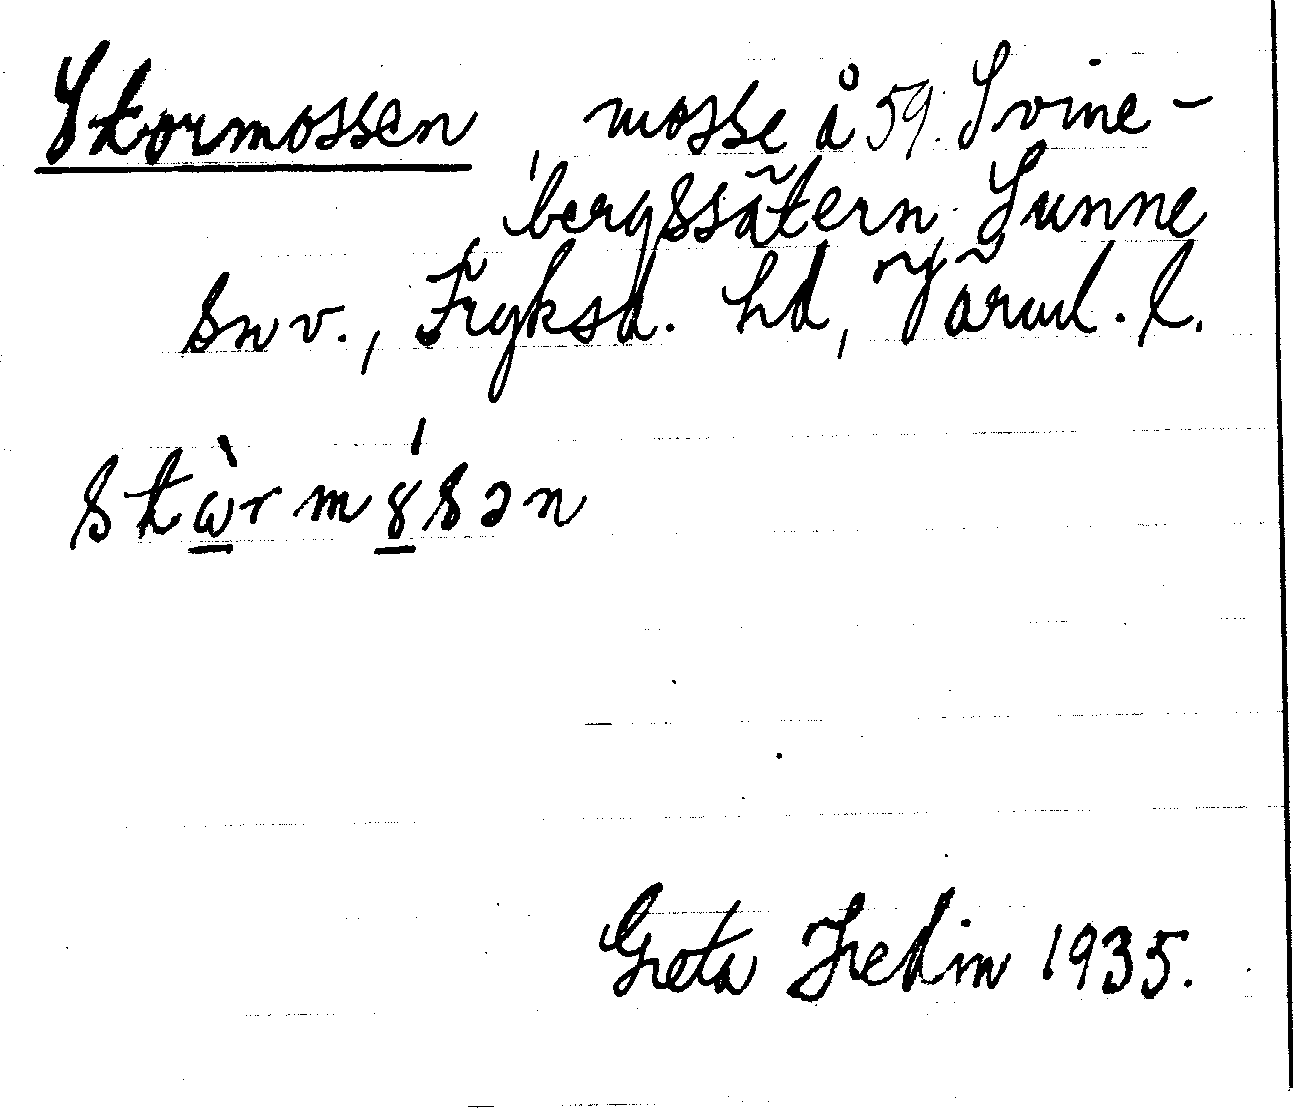 Stormossen, mosse å 59. Svine-
bergssätern, Sunne
snv., Fryksd. hd, Värml. l.
stὼrmɣ́sən
Greta Hedin 1935.